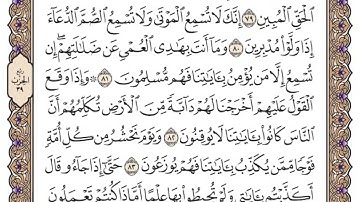 الْحَقِّ الْمُبِينِ ٧٩ إِنَّكَ لَا تُسْمِعُ الْمَوْتَىٰ وَلَا تُسْمِعُ الصُّمَّ الدُّعَآءَ
إِذَا وَلَّوْا۟ مُدْبِرِينَ ٨٠ وَمَآ أَنتَ بِهَٰدِى الْعُمْىِ عَن ضَلَٰلَتِهِمْ ۖ إِن
تُسْمِعُ إِلَّا مَن يُؤْمِنُ بِـَٔايَٰتِنَا فَهُم مُّسْلِمُونَ ٨١ ۞ وَإِذَا وَقَعَ
الْقَوْلُ عَلَيْهِمْ أَخْرَجْنَا لَهُمْ دَآبَّةً مِّنَ الْأَرْضِ تُكَلِّمُهُمْ أَنَّ
النَّاسَ كَانُوا۟ بِـَٔايَٰتِنَا لَا يُوقِنُونَ ٨٢ وَيَوْمَ نَحْشُرُ مِن كُلِّ أُمَّةٍ
فَوْجًا مِّمَّن يُكَذِّبُ بِـَٔايَٰتِنَا فَهُمْ يُوزَعُونَ ٨٣ حَتَّىٰٓ إِذَا جَآءُو قَالَ
أَكَذَّبْتُم بِـَٔايَٰتِى وَلَمْ تُحِيطُوا۟ بِهَا عِلْمًا أَمَّاذَا كُنتُمْ تَعْمَلُونَ